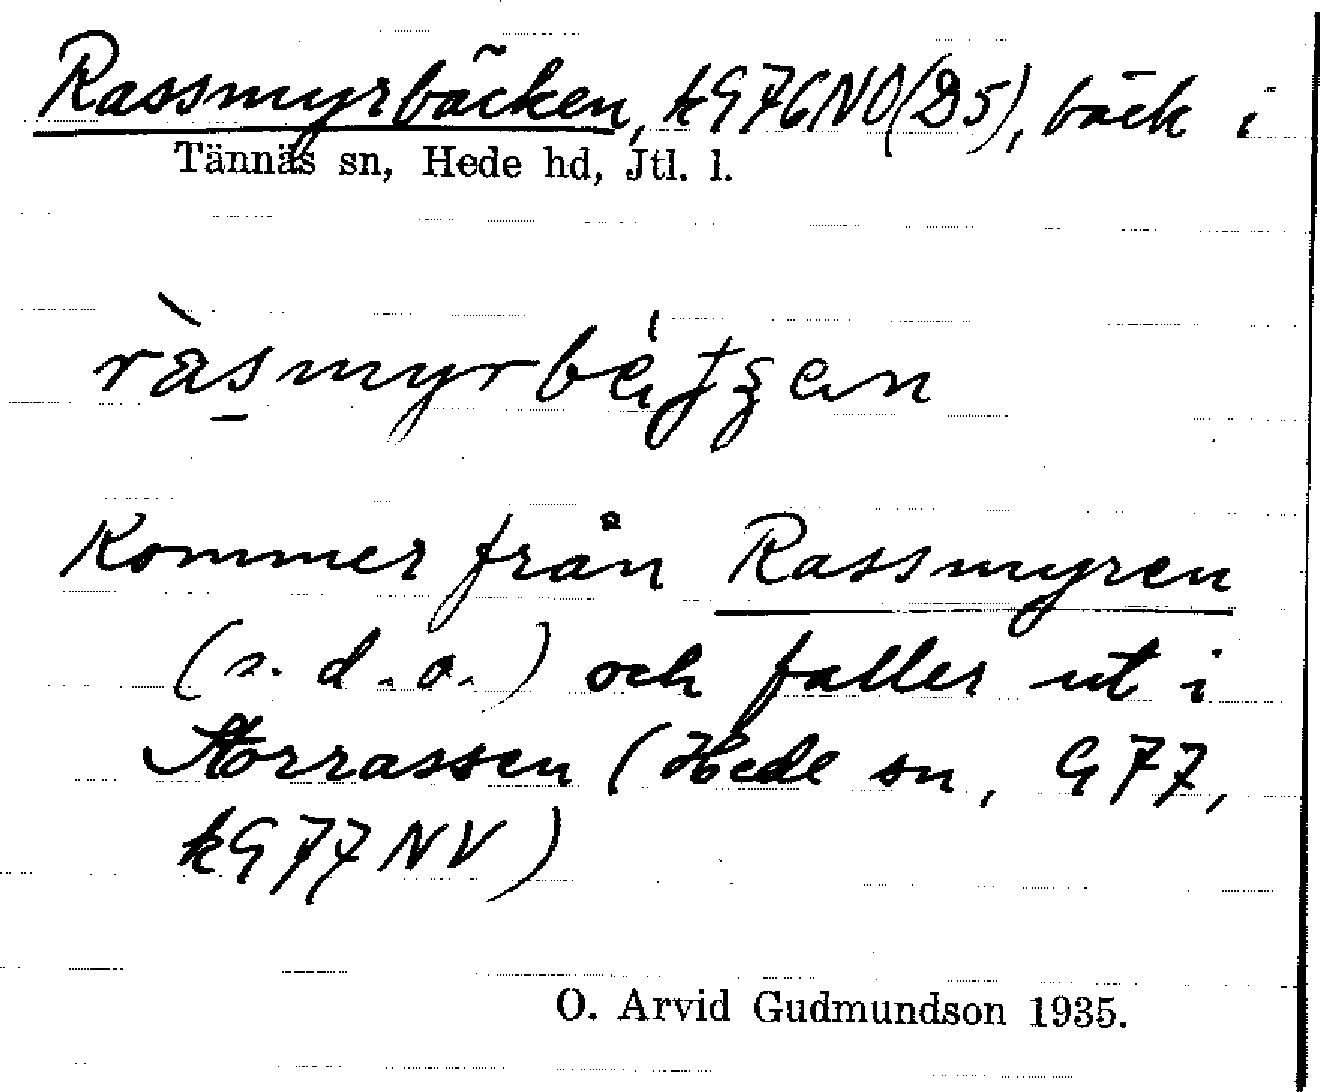 Rassmyrbäcken, kG76NO(D5), bäck i
Tännäs sn, Hede hd, Jtl. l.
Kommer från Rassmyren
(s. d. o.) och faller ut i
Storrassen (Hede sn, G77,
kG77NV)
O. Arvid Gudmundson 1935.